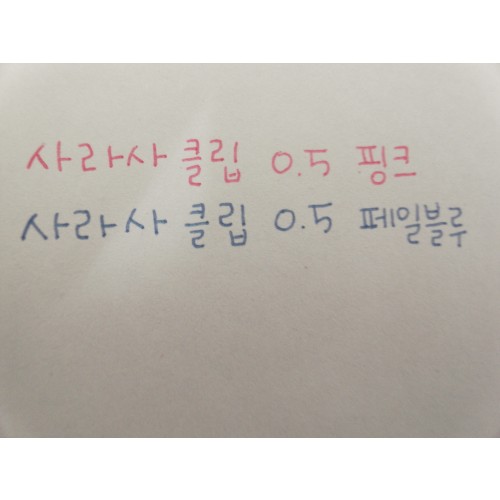 사라사 클립 0.5 핑크
사라사 클립 0.5 페일블루